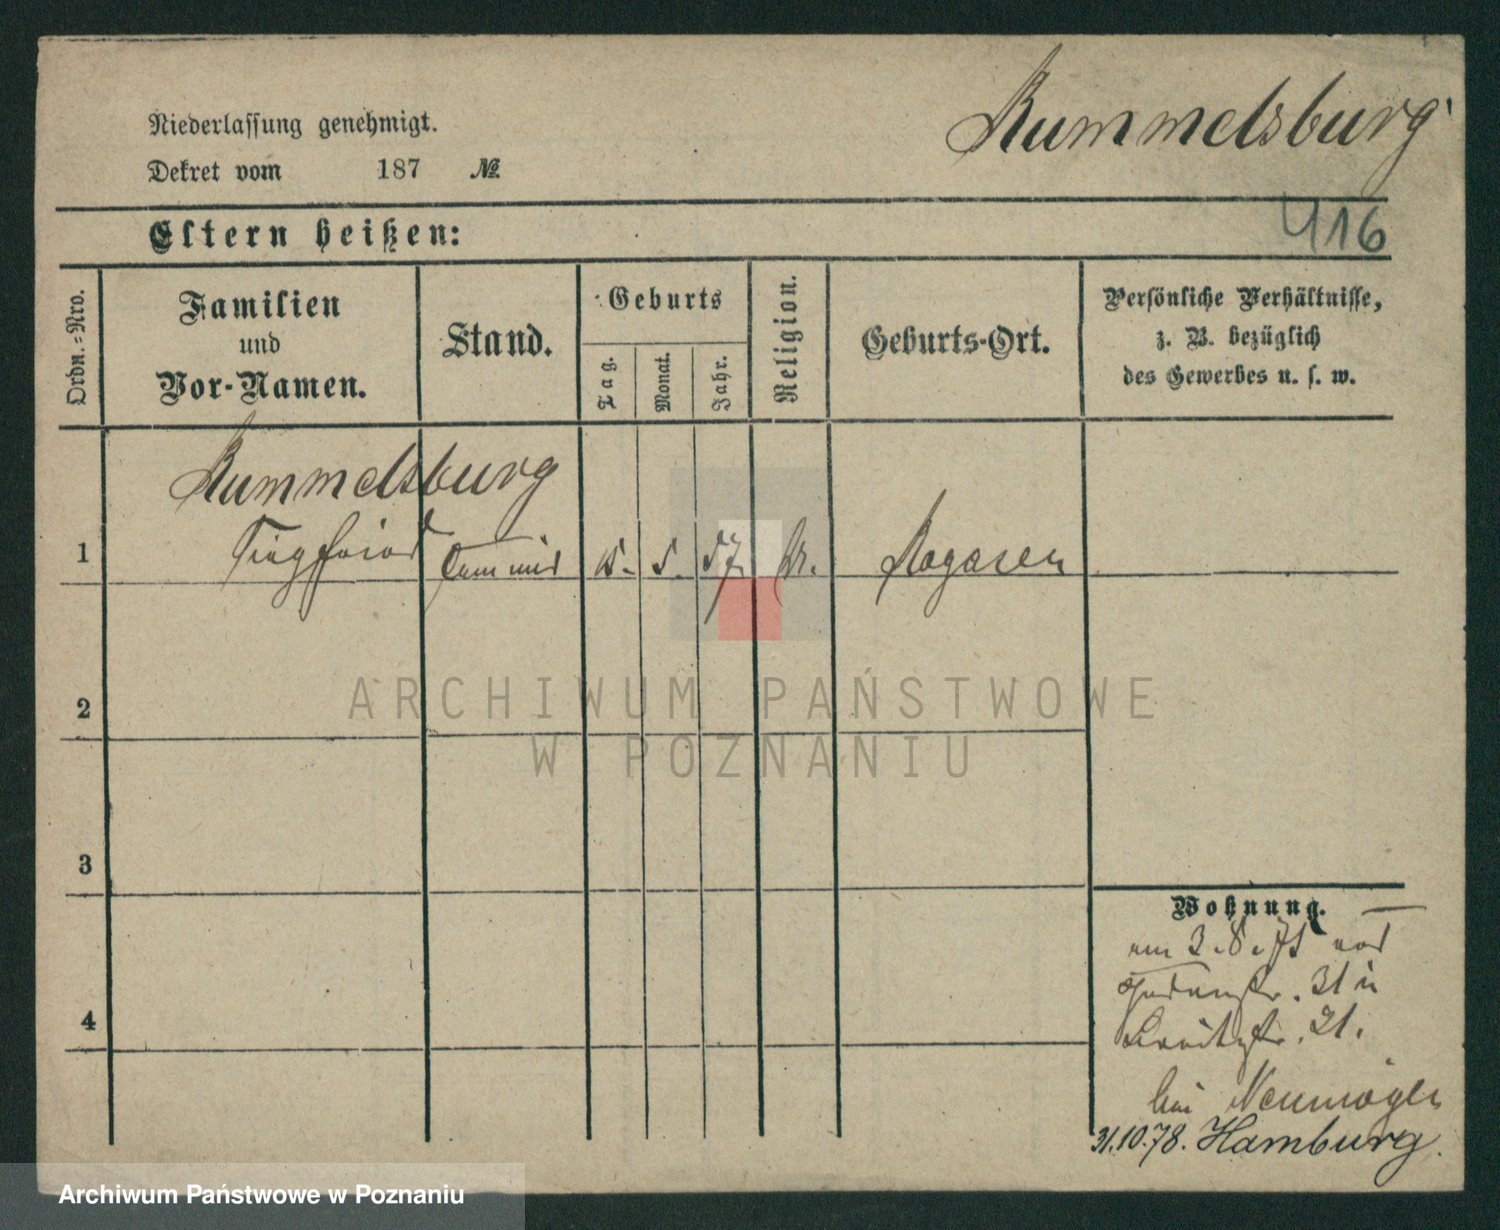 Rummelsburg
Niederlassung genehmigt.
Dekret vom 187 №
416
Eltern heißen:
Ordn.=Nro.
Familien
und
Vor-Namen.
Stand.
Geburts
Tag.
Monat.
Jahr.
Religion.
Geburts-Ort.
Persönliche Verhältnisse,
z. B. bezüglich
des Gewerbes u. s. w.
Rummelsburg
1 Siegfried Commis 5. 57. Rogasen
2
3
4
Wohnung.
3.8.75
31
Breitestr. 21.
bei
31.10.78. Hamburg.
ARCHIWUM PAŃSTWOWE
W POZNANIU
Archiwum Państwowe w Poznaniu